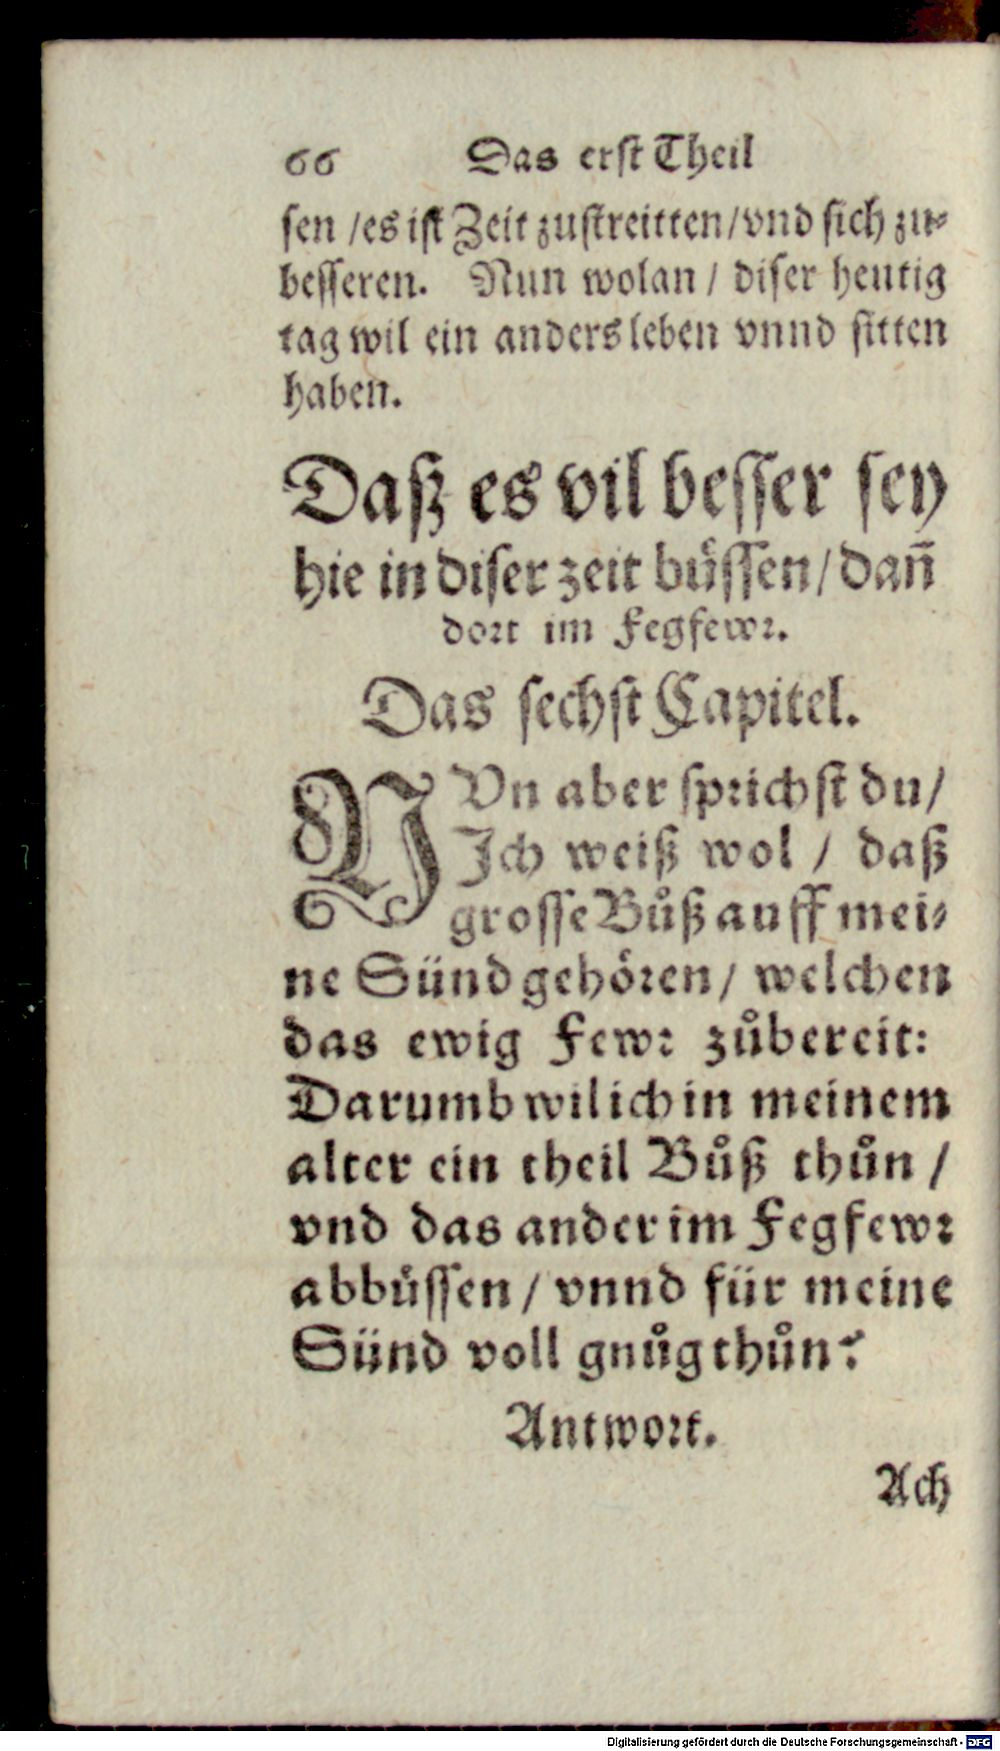 66 Das erst Theil
sen / es ist Zeit zustreitten / vnd sich zu-
besseren. Nun wolan / diser heutig
tag wil ein anders leben vnnd sitten
haben.
Daß es vil besser sey
hie in diser zeit bůssen / dañ
dort im Fegfewr.
Das sechst Capitel.
NVn aber sprichst du /
Ich weiß wol / daß
grosse Bůß auff mei-
ne Sünd gehören / welchen
das ewig Fewr zůbereit:
Darumb wil ich in meinem
alter ein theil Bůß thůn /
vnd das ander im Fegfewr
abbůssen / vnnd für meine
Sünd voll gnůg thůn?
Antwort.
Ach
Digitalisierung gefördert durch die Deutsche Forschungsgemeinschaft - DFG